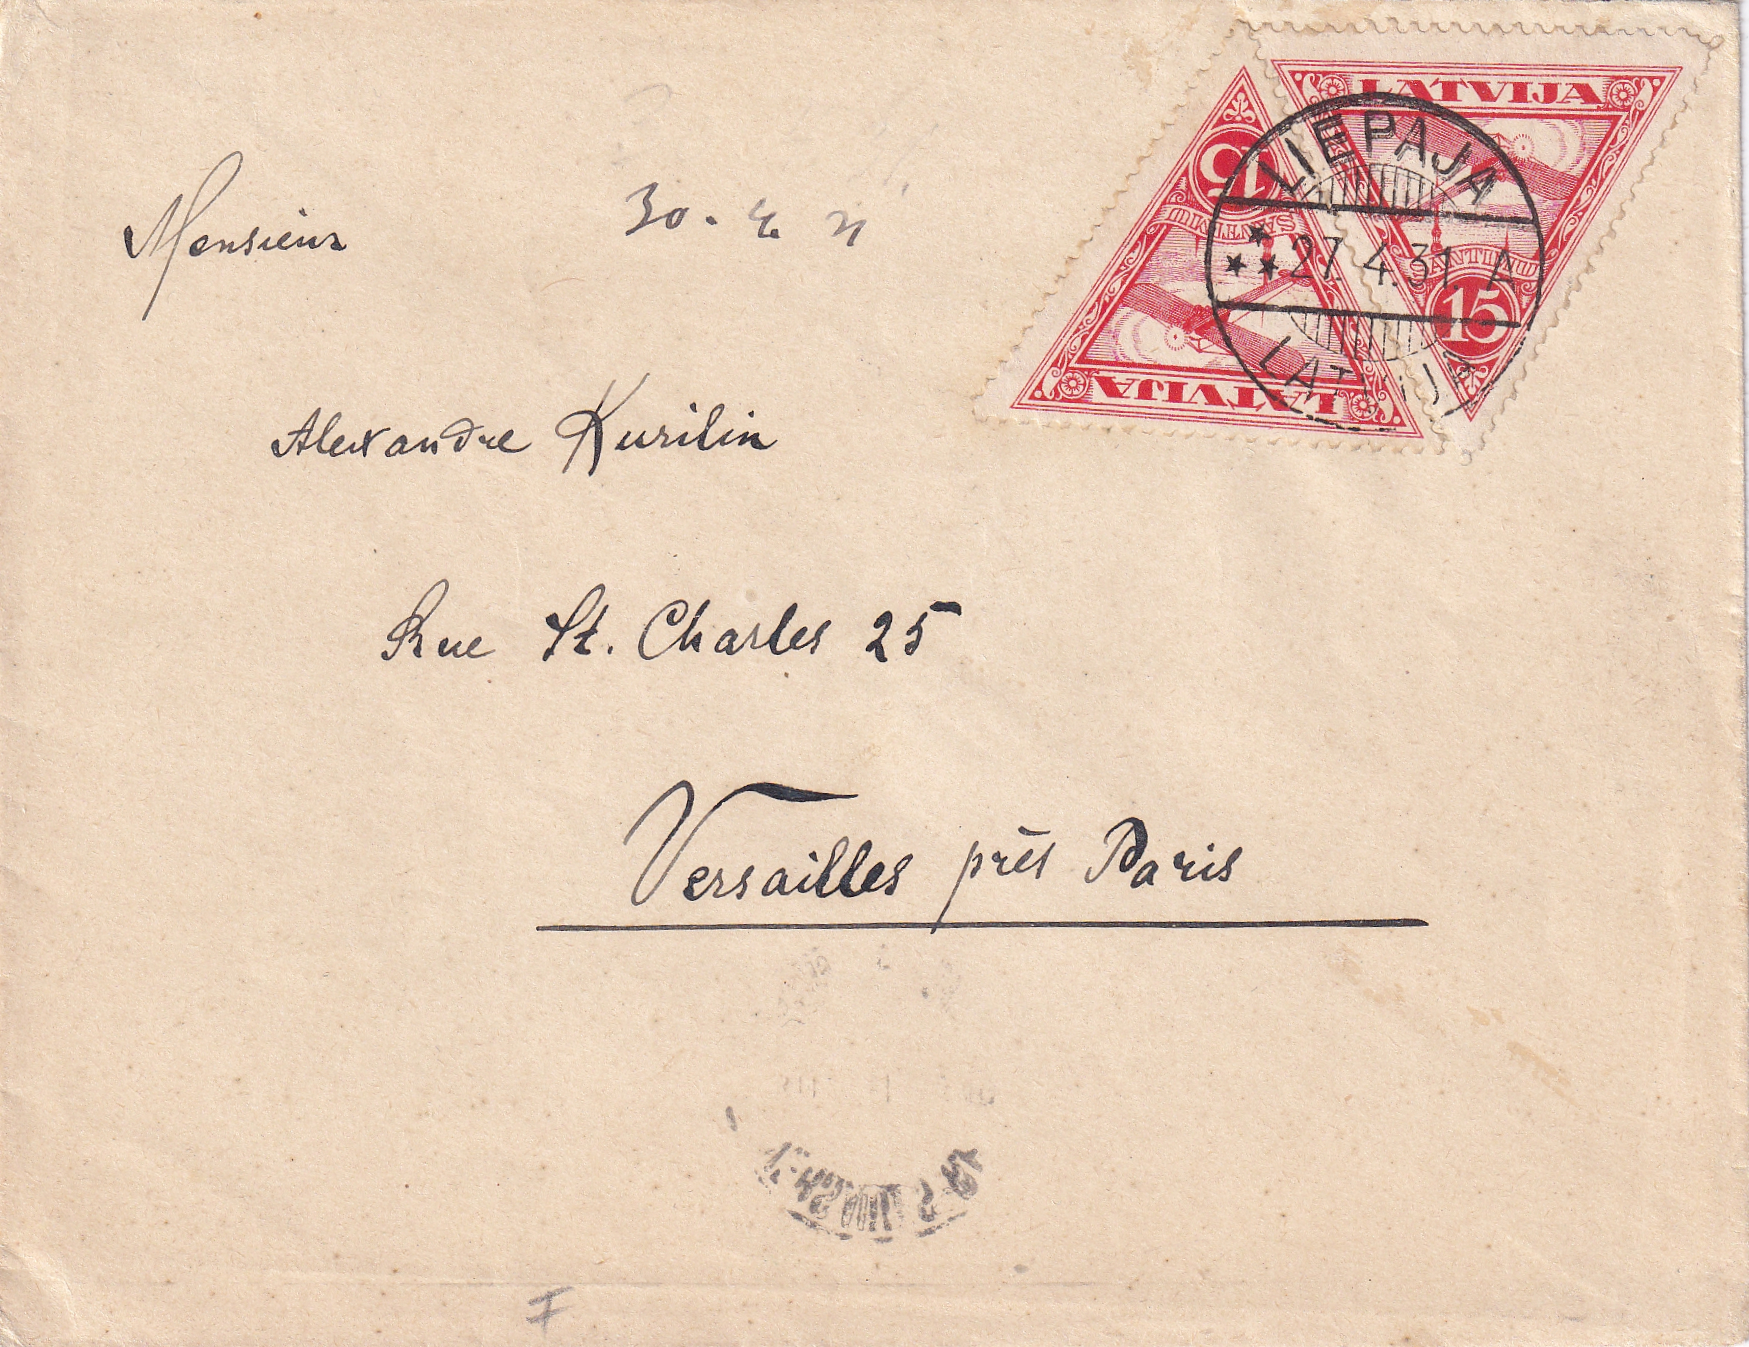 LATVIJA
SANTIMU
15
15
SANTIMU
LATVIJA
LIEPAJA
27. 4.31 A
LATVIJA
Monsieur
Alexandre Kurilin
Rue St. Charles 25
Versailles près Paris